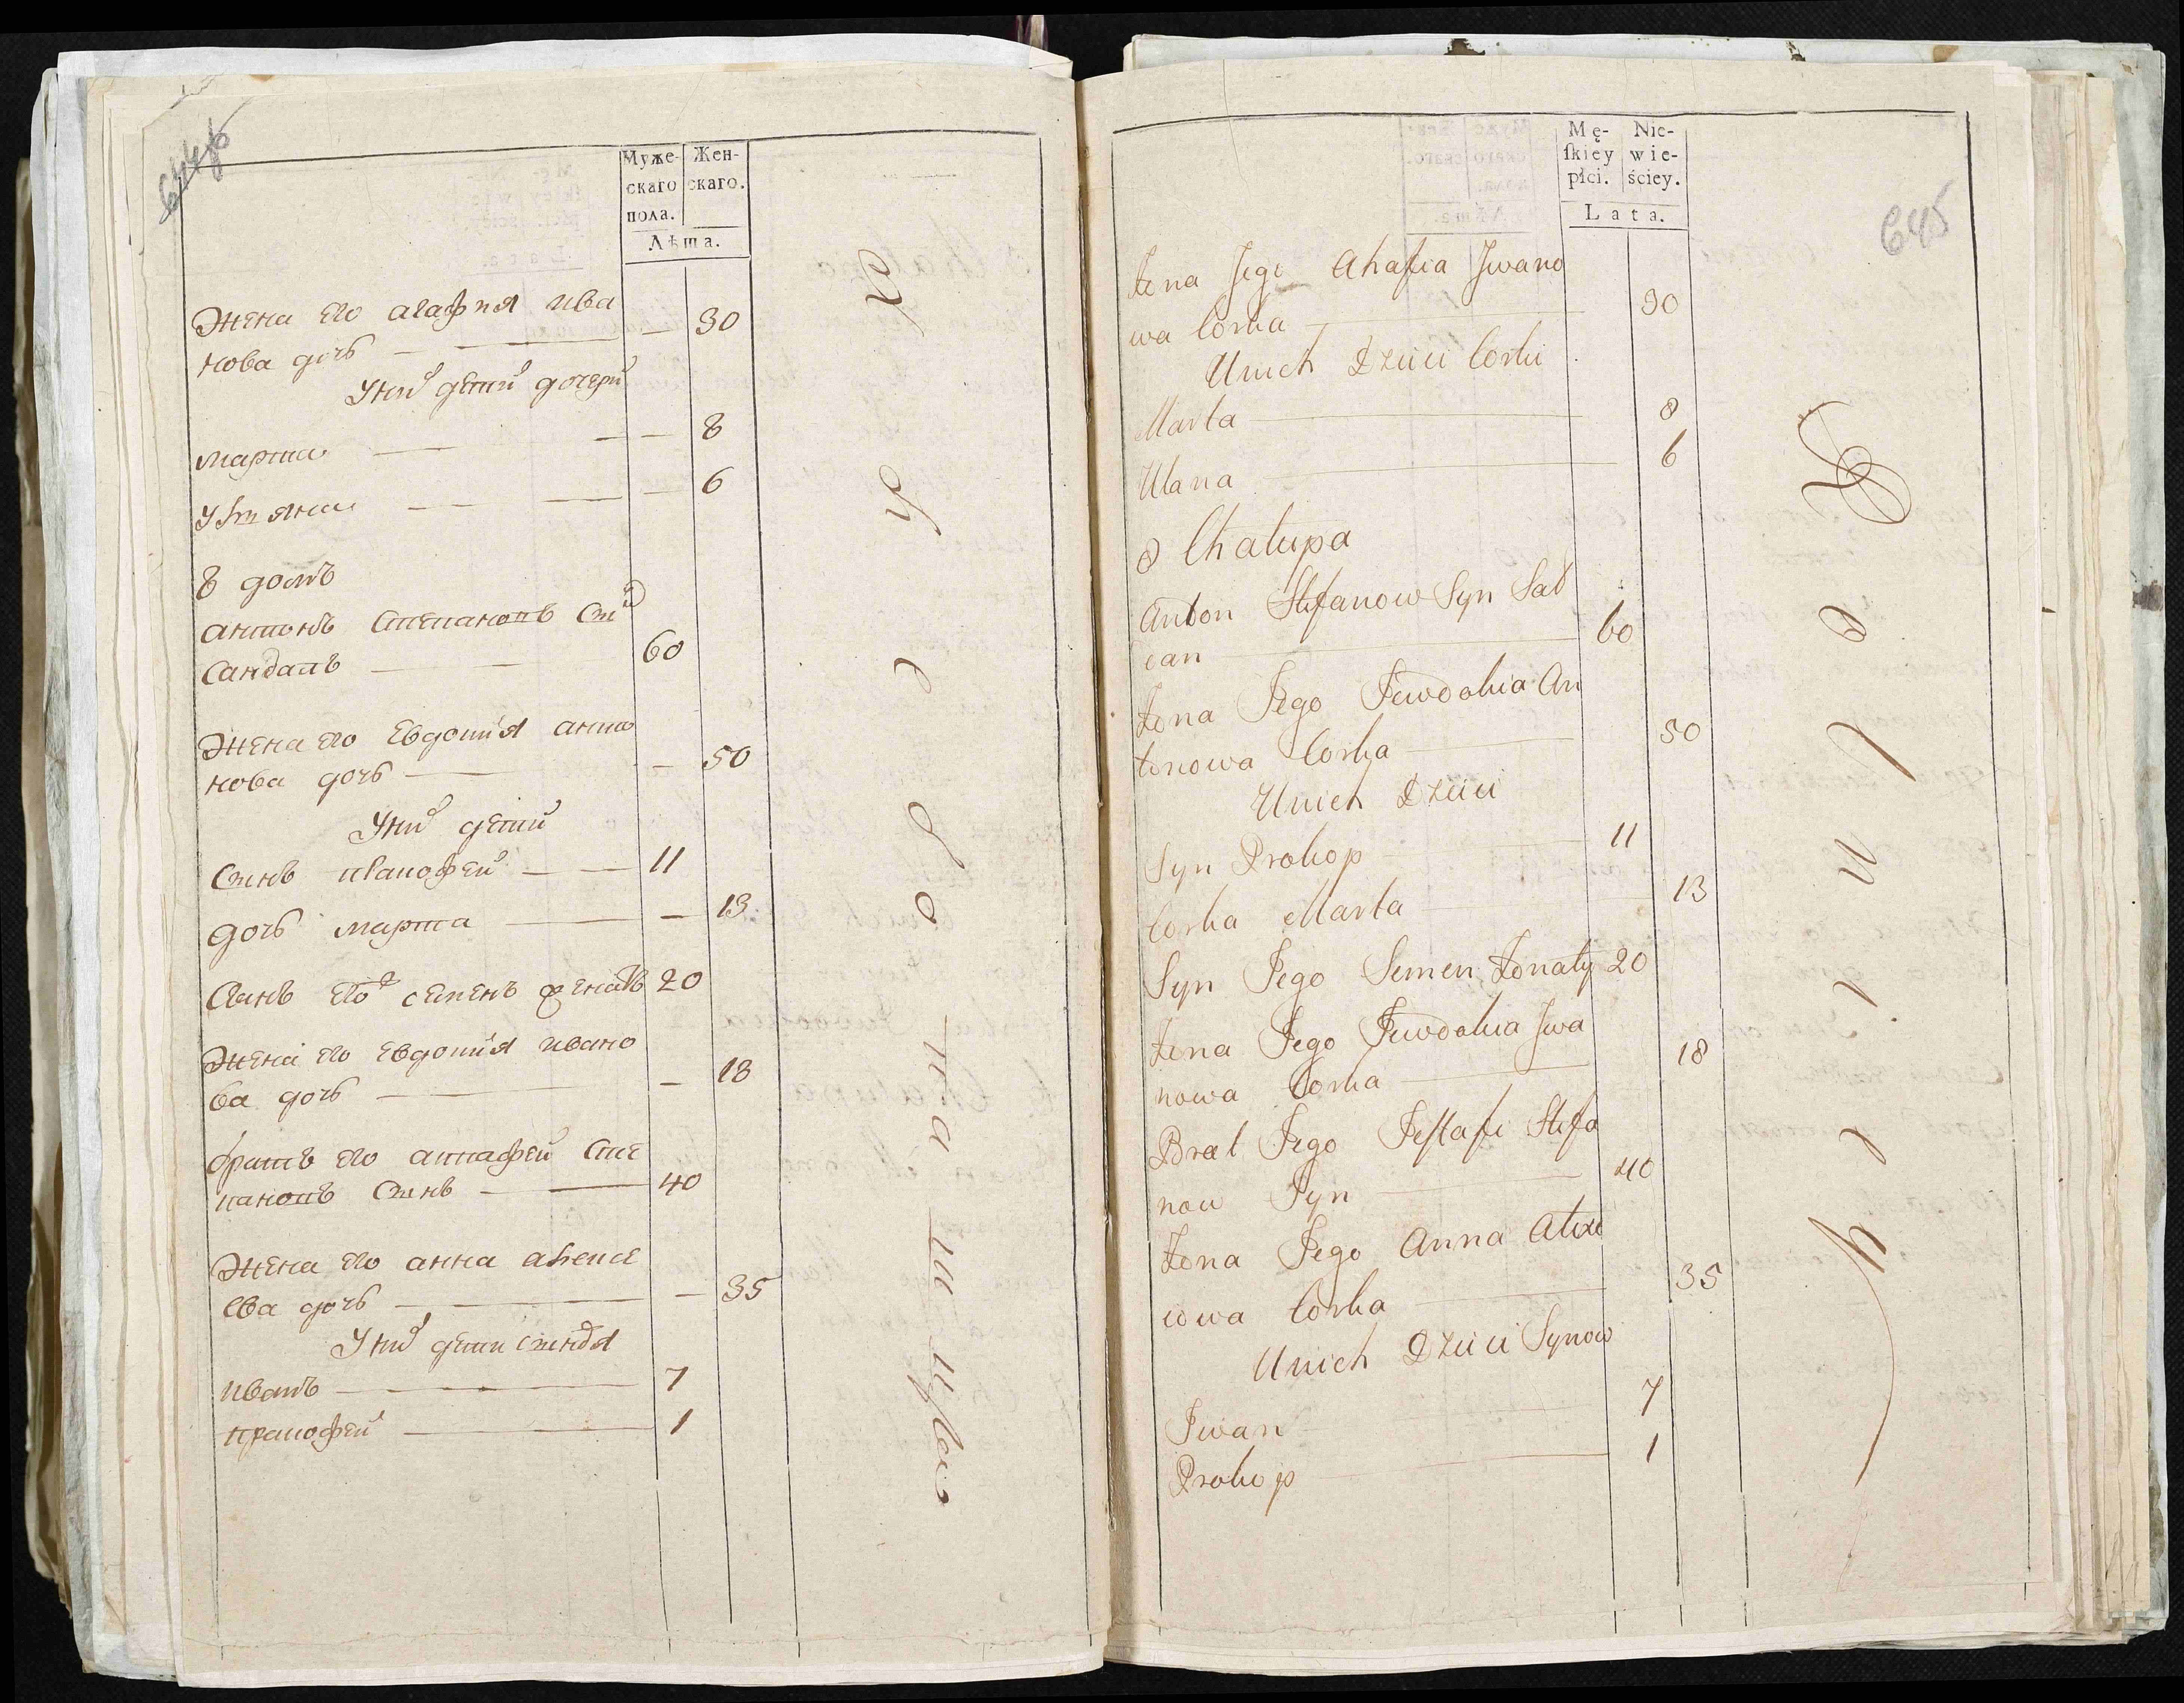 Муже- Жен-
скаго скаго.
пола.
Лѣта.
Жена его агафия ива
нова дочь — — 30
Уних детей дочери
марта — — 8
Ульяна — — 6
8 домъ
антонъ Степановъ Сы
60
Жена его Евдокия анто
нова дочь — — 50
Уних детей
Сынъ — 11
дочь марта — — 13
Сынъ его семенъ женатъ 20
Жена его Евдокия ивано
ва дочь — — 18
братъ его Сте
пановъ Сынъ — 40
Жена его анна алексе
ева дочь — — 35
Уних дети сыновя
иванъ — 7
— 1
645
Mę- Nie-
ſkiey wie-
płci. ściey.
Lata.
Żona Jego Ahafia Jwano
wa Corka 30
Unich Dzieci Corki
Marta 8
Ulana 6
8 Chałupa
Anton Stefanow Syn Sad
can 60
Żona Jego Jewdokia An
tonowa Corka 50
Unich Dzieci
Syn Prokop 11
Corka Marta 13
Syn Jego Semen Żonaty 20
Żona Jego Jewdokia Jwa
nowa Corka 18
Brat Jego Jeſtafi Stefa
now Syn 40
Żona Jego Anna Alexe
iowa Corka 35
Unich Dzieci Synow
Jwan 7
Prokop 1